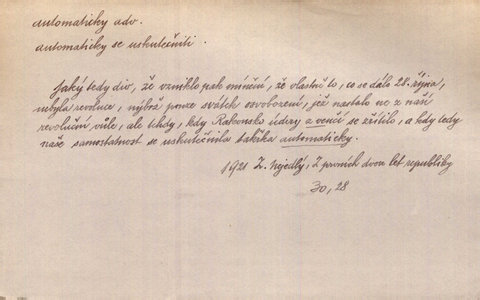 automaticky adv.
automaticky se uskutečniti.
Jaký tedy div, že vzniklo pak mínění, že vlastně to, co se dálo 28. října,
nebyla revoluce, nýbrž pouze svátek osvobození, jež nastalo ne z naší
revoluční vůle, ale tehdy, kdy Rakousko údery z venčí se zřítilo, a kdy tedy
naše samostatnost se uskutečnila takřka automaticky.
1921 Z. Nejedlý, Z prvních dvou let republiky
30, 28